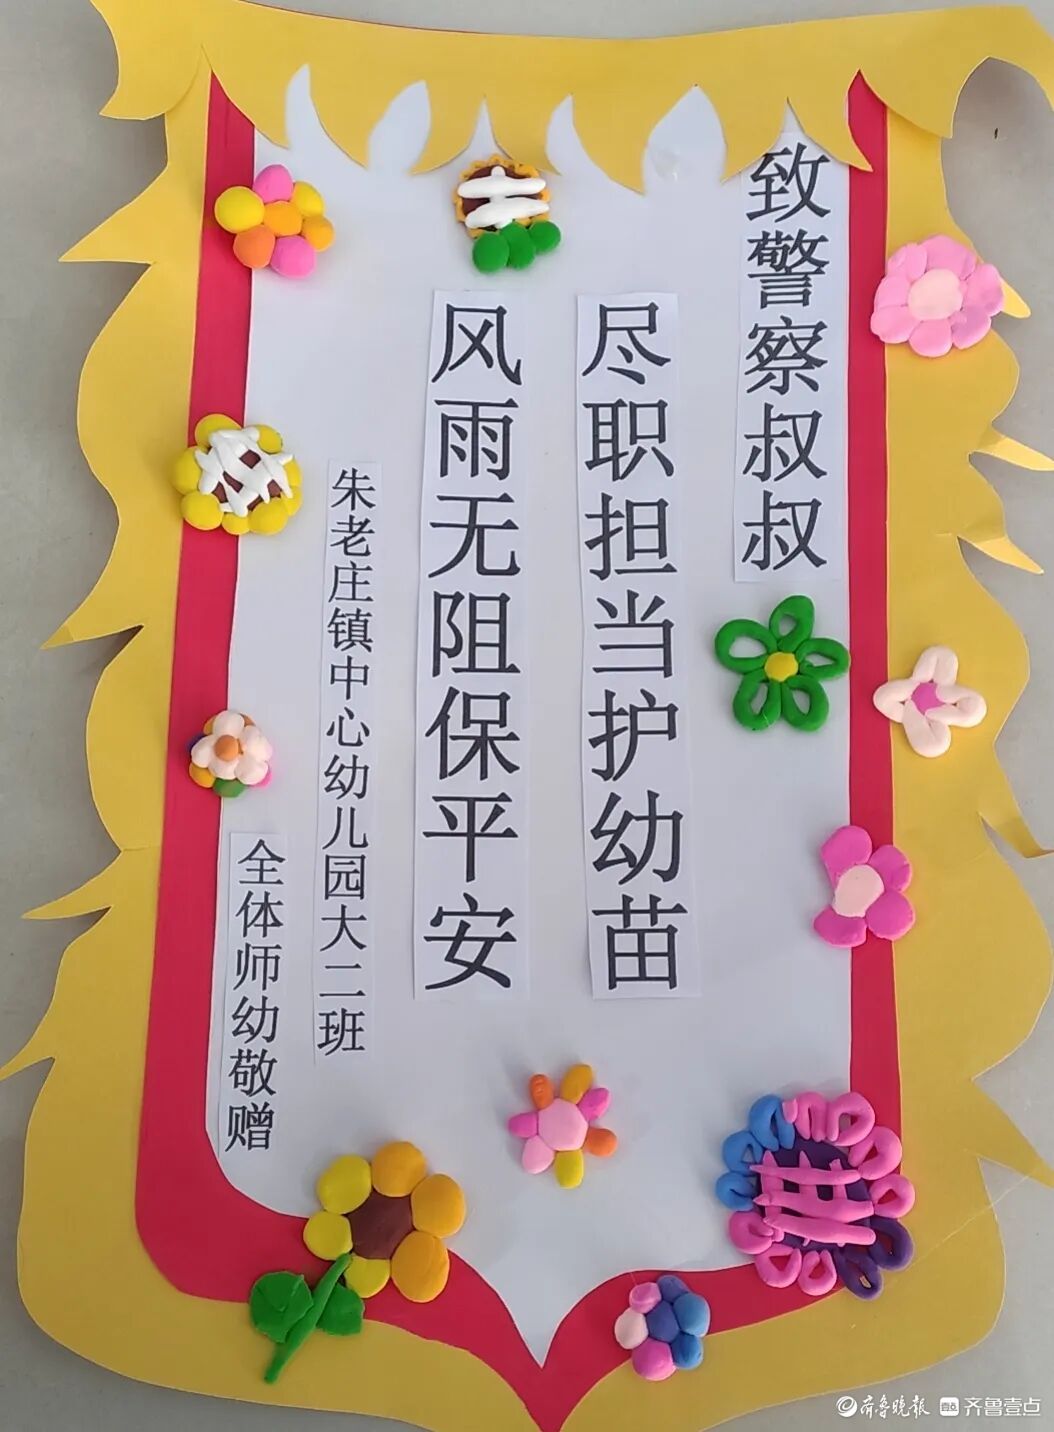 致警察叔叔
尽职担当护幼苗
风雨无阻保平安
朱老庄镇中心幼儿园大二班
全体师幼敬赠
齐鲁晚报 齐鲁壹点